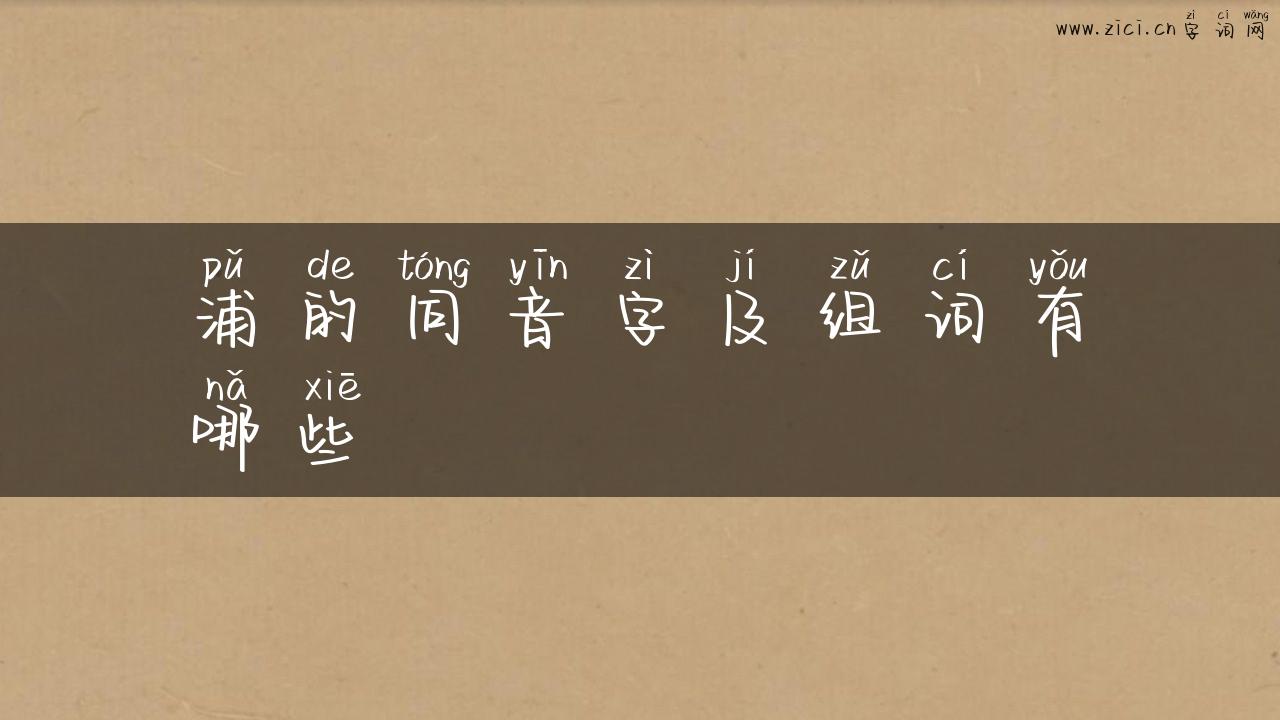 zì cí wǎng
www.zici.cn 字词网
pǔ de tóng yīn zì jí zǔ cí yǒu
浦的同音字及组词有
nǎ xiē
哪些